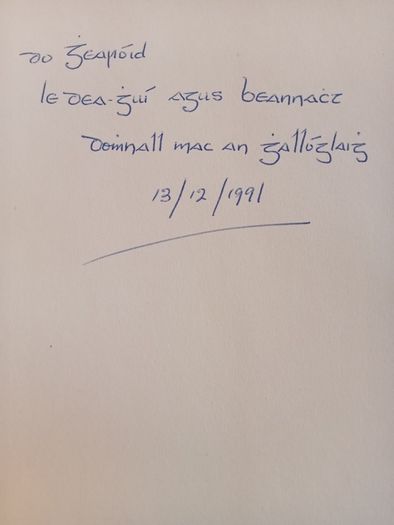 do ġearóid
le dea-ġuí agus beannaċt
doṁnall mac an ġallóglaiġ
13/12/1991